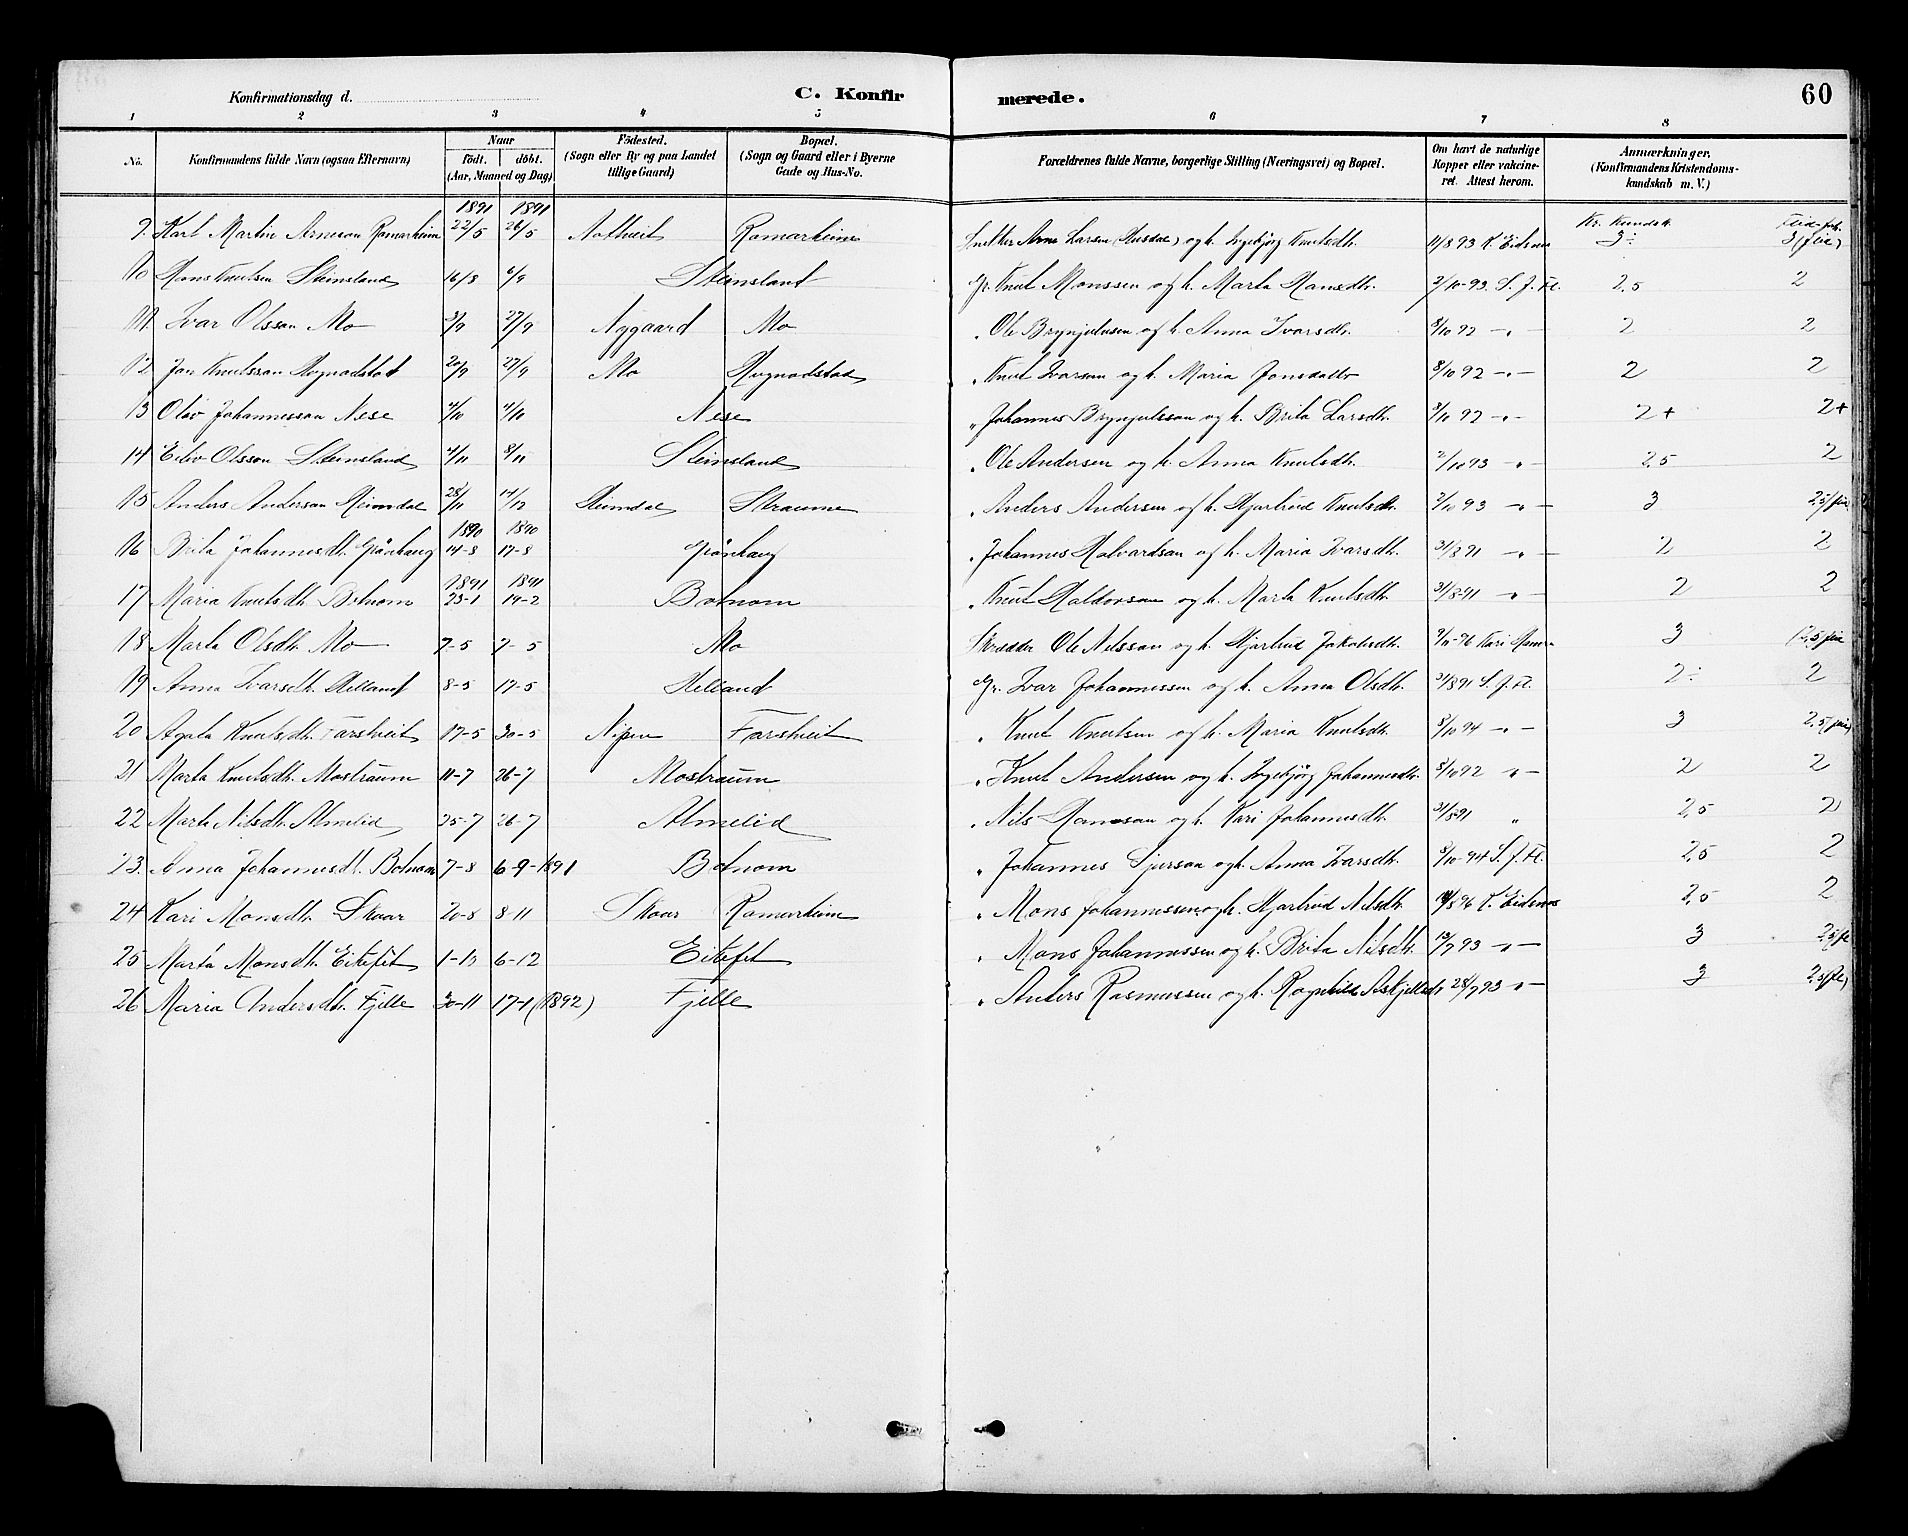 60
Konfirmationsdag d.
C. Konfirmerede.
1 2 3 4 5 6 7 8
No. Konfirmandens fulde Navn (ogsaa Efternavn) Naar födt. döbt. (Aar, Maaned og Dag) Födested. (Sogn eller By og paa Landet tillige Gaard) Bopæl. (Sogn og Gaard eller i Byerne Gade og Hus-No. Forældrenes fulde Navne, borgerlige Stilling (Næringsvei) og Bopæl. Om havt de naturlige Kopper eller vakcineret. Attest herom. Anmærkninger. (Konfirmandens Kristendomskundskab m. V.)
1891 1891 Kr. Kundsk.
9. Karl Martin Arneson Romarheim 22/5 26/5 Romarheim Arne Larsen (Husdal) og h. Ingebjörg Knutsdtr. 11/8 93 3÷
10 Mons Knutsen Steinsland 16/8 6/9 Steinsland Gr. Knut Monssen og h. Marta Hansdtr. 2/10-93 S. J. Fl. 2,5 2
11. Ivar Olsson Mo 3/9 27/9 Nygaard Mo " Ole Brynjulsen og h. Anna Ivarsdtr. 8/10 92 -"- 2 2
12 Jon Knutsson Rognodstad 20/9 27/9 Mo Rognodstad " Knut Ivarsen og h. Maria Jonsdatter 8/10 92 -"- 2 2
13 Olav Johannesson Nese 4/10 Nese " Johannes Brynjulsson og h. Brita Larsdtr. 8/10 92 -"- 2+ 2+
14 Eiliv Olsson Steinsland 4/11 8/11 Steinsland " Ole Andersen og h. Anna Knutsdtr. 2/10 93 " 2,5 2
15 Anders Anderson Heimdal 28/11 14/12 Heimdal Straume " Anders Andersen og h. Hjartrud Knutsdtr. 2/10 93 -"- 3
1890 1890
16 Brita Johannesdtr. Grönhaug 14-8 17-8 Grönhaug " Johannes Halvardson og h. Maria Ivarsdtr. 31/8 91 " 2 2
1891 1891
17 Maria Knutsdtr. Botnom 23-1 19-2 Botnom " Knut Haldorson og h. Marta Knutsdtr. 31/8-91 -"- 2 2
18 Marta Olsdtr. Mo 7-5 7-5 Mo Skrædder Ole Nilsson og h. Hjartrud Jakobsdtr. 3
19 Anna Ivarsdtr. Helland 8-5 17-5 Helland Gr. Ivar Johannessen og h. Anna Olsdtr. 31/8 91 S. J. Fl. 2÷ 2
20 Agata Knutsdtr. Farstveit 17-5 30-5 Nipen Farstveit " Knut Knutsen og h. Maria Knutsdtr. 8/10 94 -"- 3
21 Marta Knutsdtr. Mostraum 11-7 26-7 Mostraum " Knut Andersen og h. Ingebjörg Johannesdtr. 8/10 92 "- 2 2
22 Marta Nilsdtr. Almelid 25-7 26-7 Almelid " Nils Hansson og h. Kari Johannesdtr. 31/8-91 " 2,5 2
23. Anna Johannesdtr. Botnom 7-8 6-9-1891 Botnom " Johannes Sjurson og h. Anna Ivarsdtr. 8/10-94 S. J. Fl. 2,5 2
24 Kari Monsdtr. Skaar 20-8 8-11 Skaar Romarheim " Mons Johannessen og h. Hjartrud Nilsdtr. 2,5 2
25 Marta Monsdtr. Eikefet 1-10 6-12 Eikefet " Mons Johannessen og h. Brita Nilsdtr. 13/7 93 -"- 3
26 Maria Andersdtr. Fjelle 30-11 17-1 (1892) Fjelle " Anders Rasmussen og h. Rognhild 28/7 93 "- 3